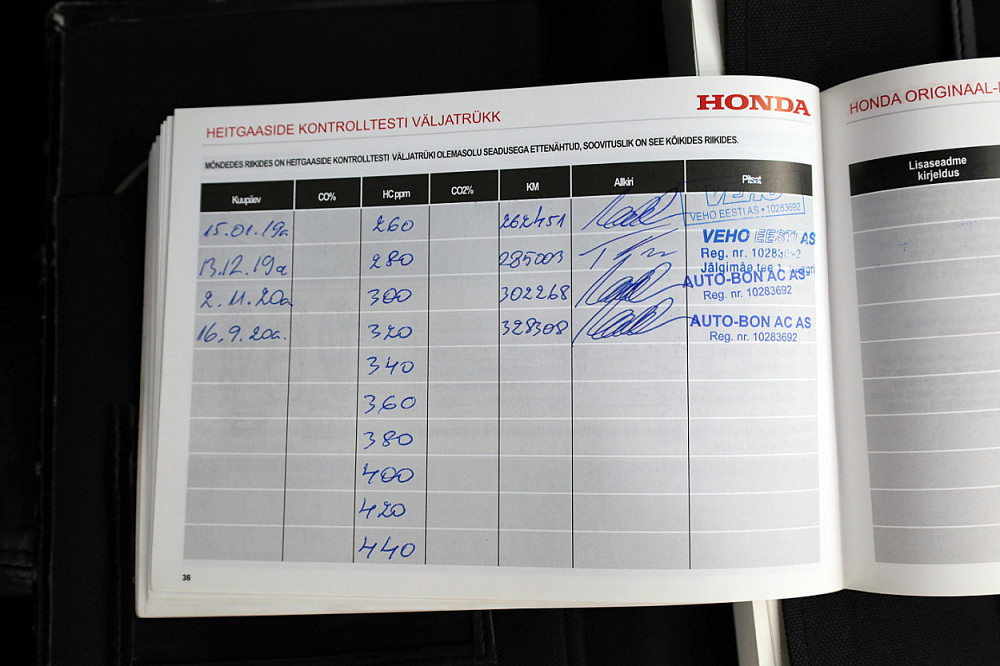 HONDA
HEITGAASIDE KONTROLLTESTI VÄLJATRÜKK
MÕNDEDES RIIKIDES ON HEITGAASIDE KONTROLLTESTI VÄLJATRÜKI OLEMASOLU SEADUSEGA ETTENÄHTUD, SOOVITUSLIK ON SEE KÕIKIDES RIIKIDES.
Kuupäev CO% HC ppm CO2% KM Allkiri Pitsat
VEHO
VEHO EESTI AS • 10283692
15.01.19a 260 262451
VEHO EESTI AS
Reg. nr. 10283692
13.12.19a 280 285003
Jälgimäe tee 1
AUTO-BON AC AS
2.11.20a 300 302268
Reg. nr. 10283692
16.9.20a. 320 328308
AUTO-BON AC AS
Reg. nr. 10283692
340
360
380
400
420
440
36
HONDA ORIGINAAL-
Lisaseadme
kirjeldus